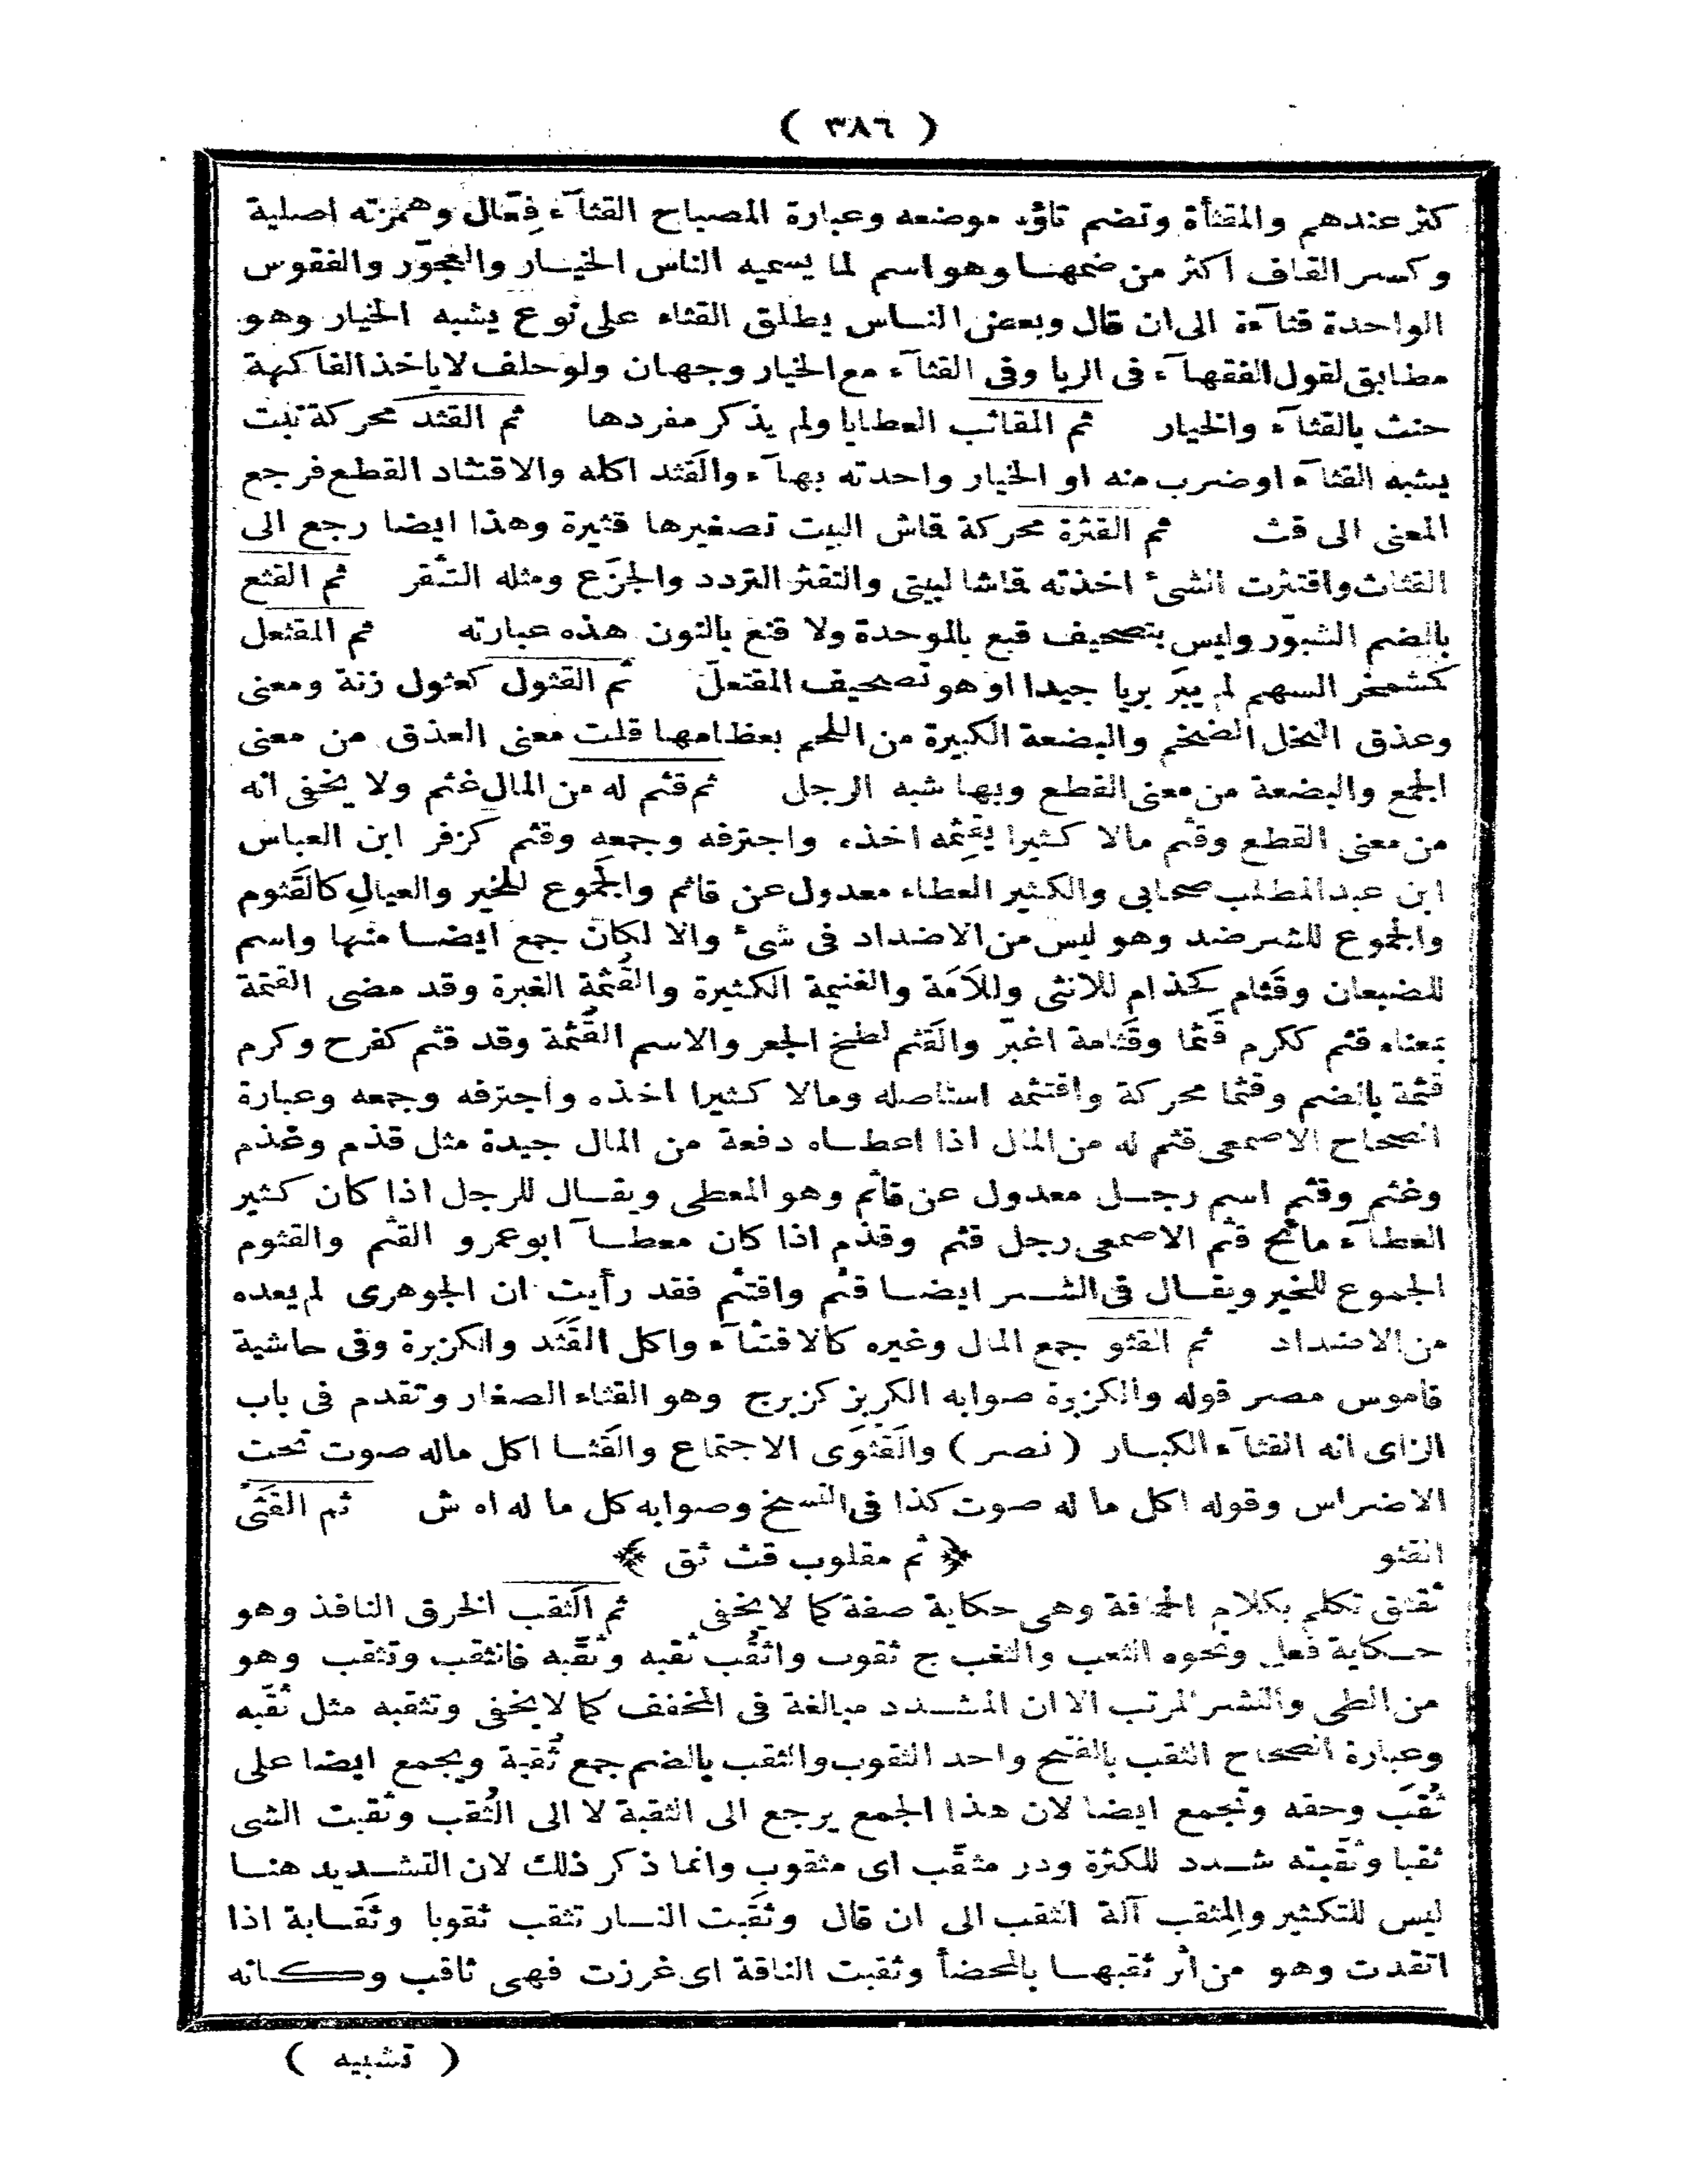 ( ٣٨٦ )
كثر عندهم والمقثأة وتضم ثاؤه موضعه وعبارة المصباح القثآء فِعّال وهمزته اصلية
وكسر القاف اكثر من ضمها وهو اسم لما يسميه الناس الخيار والعجّور والفقوس
الواحدة قثآءة الى ان قال وبعض الناس يطلق القثاء على نوع يشبه الخيار وهو
مطابق لقول الفقهآء فى الربا وفى القثآء مع الخيار وجهان ولو حلف لا ياخذ الفاكهة
حنث بالقثآء والخيار ثم المقاثب العطايا ولم يذكر مفردها ثم القثد محركة نبت
يشبه القثآء او ضرب منه او الخيار واحدته بهآء والقَثد اكله والاقتثاد القطع فرجع
المعنى الى قث ثم القثرة محركة قاش البيت تصغيرها قثيرة وهذا ايضا رجع الى
القثاث واقتثرت الشىء اخذته قاشا لبيتى والتقثر التردد والجزَع ومثله التثقر ثم القثع
بالضم الشبّور وليس بتصحيف قبع بالموحدة ولا قنع بالنون هذه عبارته ثم المقثعل
كشمخر السهم لم يبرَ بريا جيدا او هو تصحيف المقتعلّ ثم القثول كعثول زنة ومعنى
وعذق النخل الضخم والبضعة الكبيرة من اللحم بعظامها قلت معنى العذق من معنى
الجمع والبضعة من معنى القطع وبها شبه الرجل ثم قثم له من المال غثم ولا يخفى انه
من معنى القطع وقثم مالا كثيرا يقثِمُه اخذه واجترفه وجمعه وقثم كزفر ابن العباس
ابن عبد المطلب صحابى والكثير العطاء معدول عن قاثم والجَموع للخير والعيالِ كالقَثوم
والجموع للشر ضد وهو ليس من الاضداد فى شىء والا لكان جمع ايضا منها واسم
للضبعان وقَثام كحذام للانثى وللأمَة والغنيمة الكثيرة والقُثمة الغبرة وقد مضى القتمة
بمعناه قثم ككرم قَثما وقَثامة اغبرّ والقَثم لطخ الجعر والاسم القُثمة وقد قثم كفرح وكرم
قثمة بالضم وقثما محركة واقتثمه استاصله ومالا كثيرا اخذه واجترفه وجمعه وعبارة
الصحاح الاصمعى قثم له من المال اذا اعطاه دفعة من المال جيدة مثل قذم وغذم
وغثم وقثم اسم رجل معدول عن قاثم وهو المعطى ويقال للرجل اذا كان كثير
العطآء مائح قثم الاصمعى رجل قثم وقذم اذا كان معطآ ابو عمرو القثم والقثوم
الجموع للخير ويقال فى الشر ايضا قثم واقتثم فقد رأيت ان الجوهرى لم يعده
من الاضداد ثم القثو جمع المال وغيره كالاقتثآء واكل القَثَد والكزبرة وفى حاشية
قاموس مصر قوله والكزبرة صوابه الكربز كزبرج وهو القثاء الصغار وتقدم فى باب
الزاى انه القثآء الكبار ( نصر ) والقَثْوَى الاجتماع والقَثا اكل ماله صوت تحت
الاضراس وقوله اكل ما له صوت كذا فى النسخ وصوابه كل ما له اه ش ثم القَثْى
القثو
﴿ ثم مقلوب قث ثق ﴾
ثقثق تكلم بكلام الحماقة وهى حكاية صفة كما لا يخفى ثم الثقب الخرق النافذ وهو
حكاية فعل ونحوه الثعب والثغب ج ثقوب واثقُب ثقبه وثقّبه فانثقب وتثقب وهو
من الطى والنشر المرتب الا ان المشدد مبالغة فى المخفف كما لا يخفى وتثقبه مثل ثقّبه
وعبارة الصحاح الثقب بالفتح واحد الثقوب والثقب بالضم جمع ثُقبة ويجمع ايضا على
ثُقَب وحقه وتجمع ايضا لان هذا الجمع يرجع الى الثقبة لا الى الثُقب وثقبت الشى
ثقبا وثقّبته شدد للكثرة ودر مثقّب اى مثقوب وانما ذكر ذلك لان التشديد هنا
ليس للتكثير والمِثقب آلة الثقب الى ان قال وثقَبت النار تثقب ثقوبا وثَقابة اذا
اتقدت وهو من اثر ثقبها بالمحضأ وثقبت الناقة اى غرزت فهى ثاقب وكانه
( تشبيه )